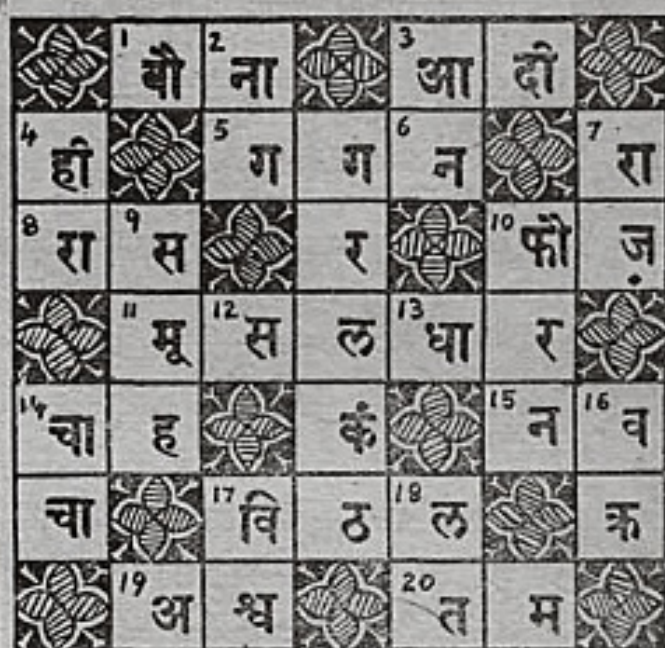 1 बौ 2 ना 3 आ दी
4 ही 5 ग ग 6 न 7 रा
8 रा 9 स र 10 फौ ज़
11 मू 12 स ल 13 धा र
14 चा ह कं 15 न 16 व
चा 17 वि ठ 18 ल क्र
19 अ श्व 20 त म